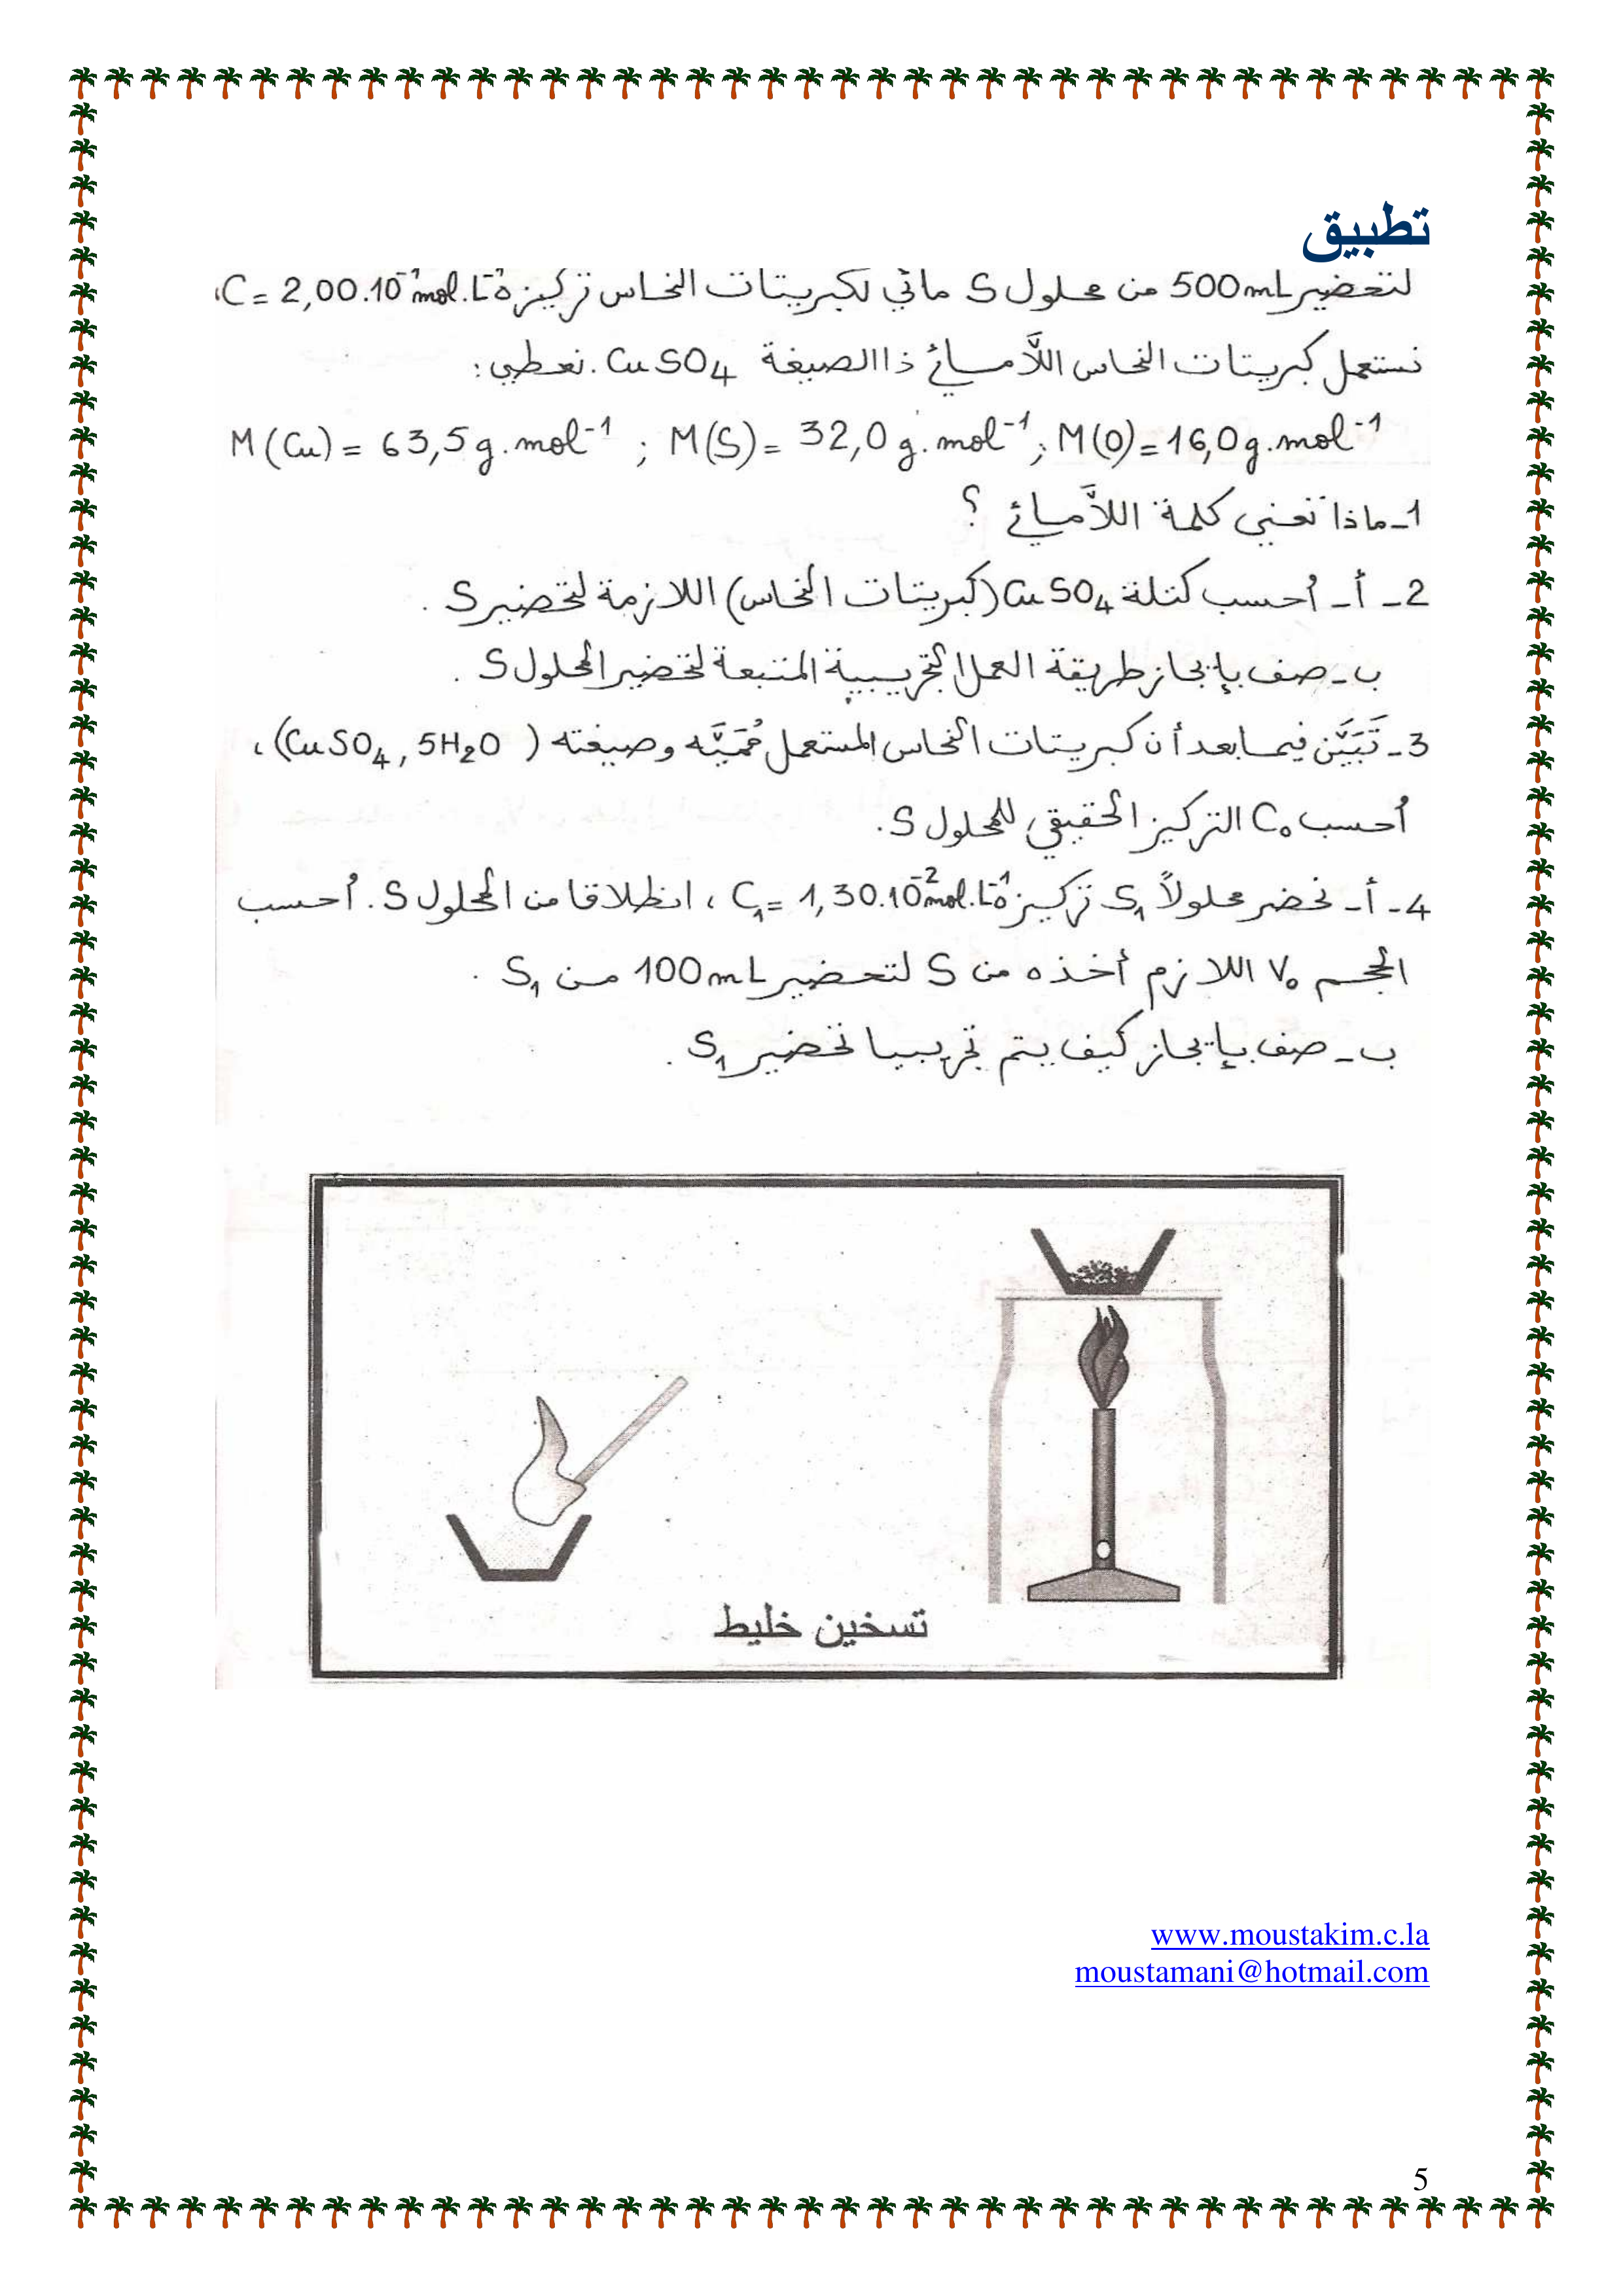 تطبيق
لتحضير 500mL من محلول S مائي لكبريتات النحاس تركيزه C = 2,00.10⁻¹ mol.L⁻¹،
نستعمل كبريتات النحاس اللَّامائي ذا الصيغة CuSO₄. نعطي:
M(Cu) = 63,5 g.mol⁻¹ ; M(S) = 32,0 g.mol⁻¹ ; M(O) = 16,0 g.mol⁻¹
1- ماذا تعني كلمة اللَّامائي ؟
2- أ- أُحسب كتلة CuSO₄ (كبريتات النحاس) اللازمة لتحضير S.
ب- صف بإيجاز طريقة العمل التجريبية المتبعة لتحضير المحلول S.
3- تَبَيَّن فيما بعد أن كبريتات النحاس المستعمل مُمَيَّه وصيغته (CuSO₄, 5H₂O)،
أُحسب C₀ التركيز الحقيقي للمحلول S.
4- أ- نحضر محلولاً S₁ تركيزه C₁ = 1,30.10⁻² mol.L⁻¹، انطلاقا من المحلول S. أُحسب
الحجم V₀ اللازم أخذه من S لتحضير 100mL من S₁.
ب- صف بإيجاز كيف يتم تجريبيا تحضير S₁.
تسخين خليط
www.moustakim.c.la
moustamani@hotmail.com
5